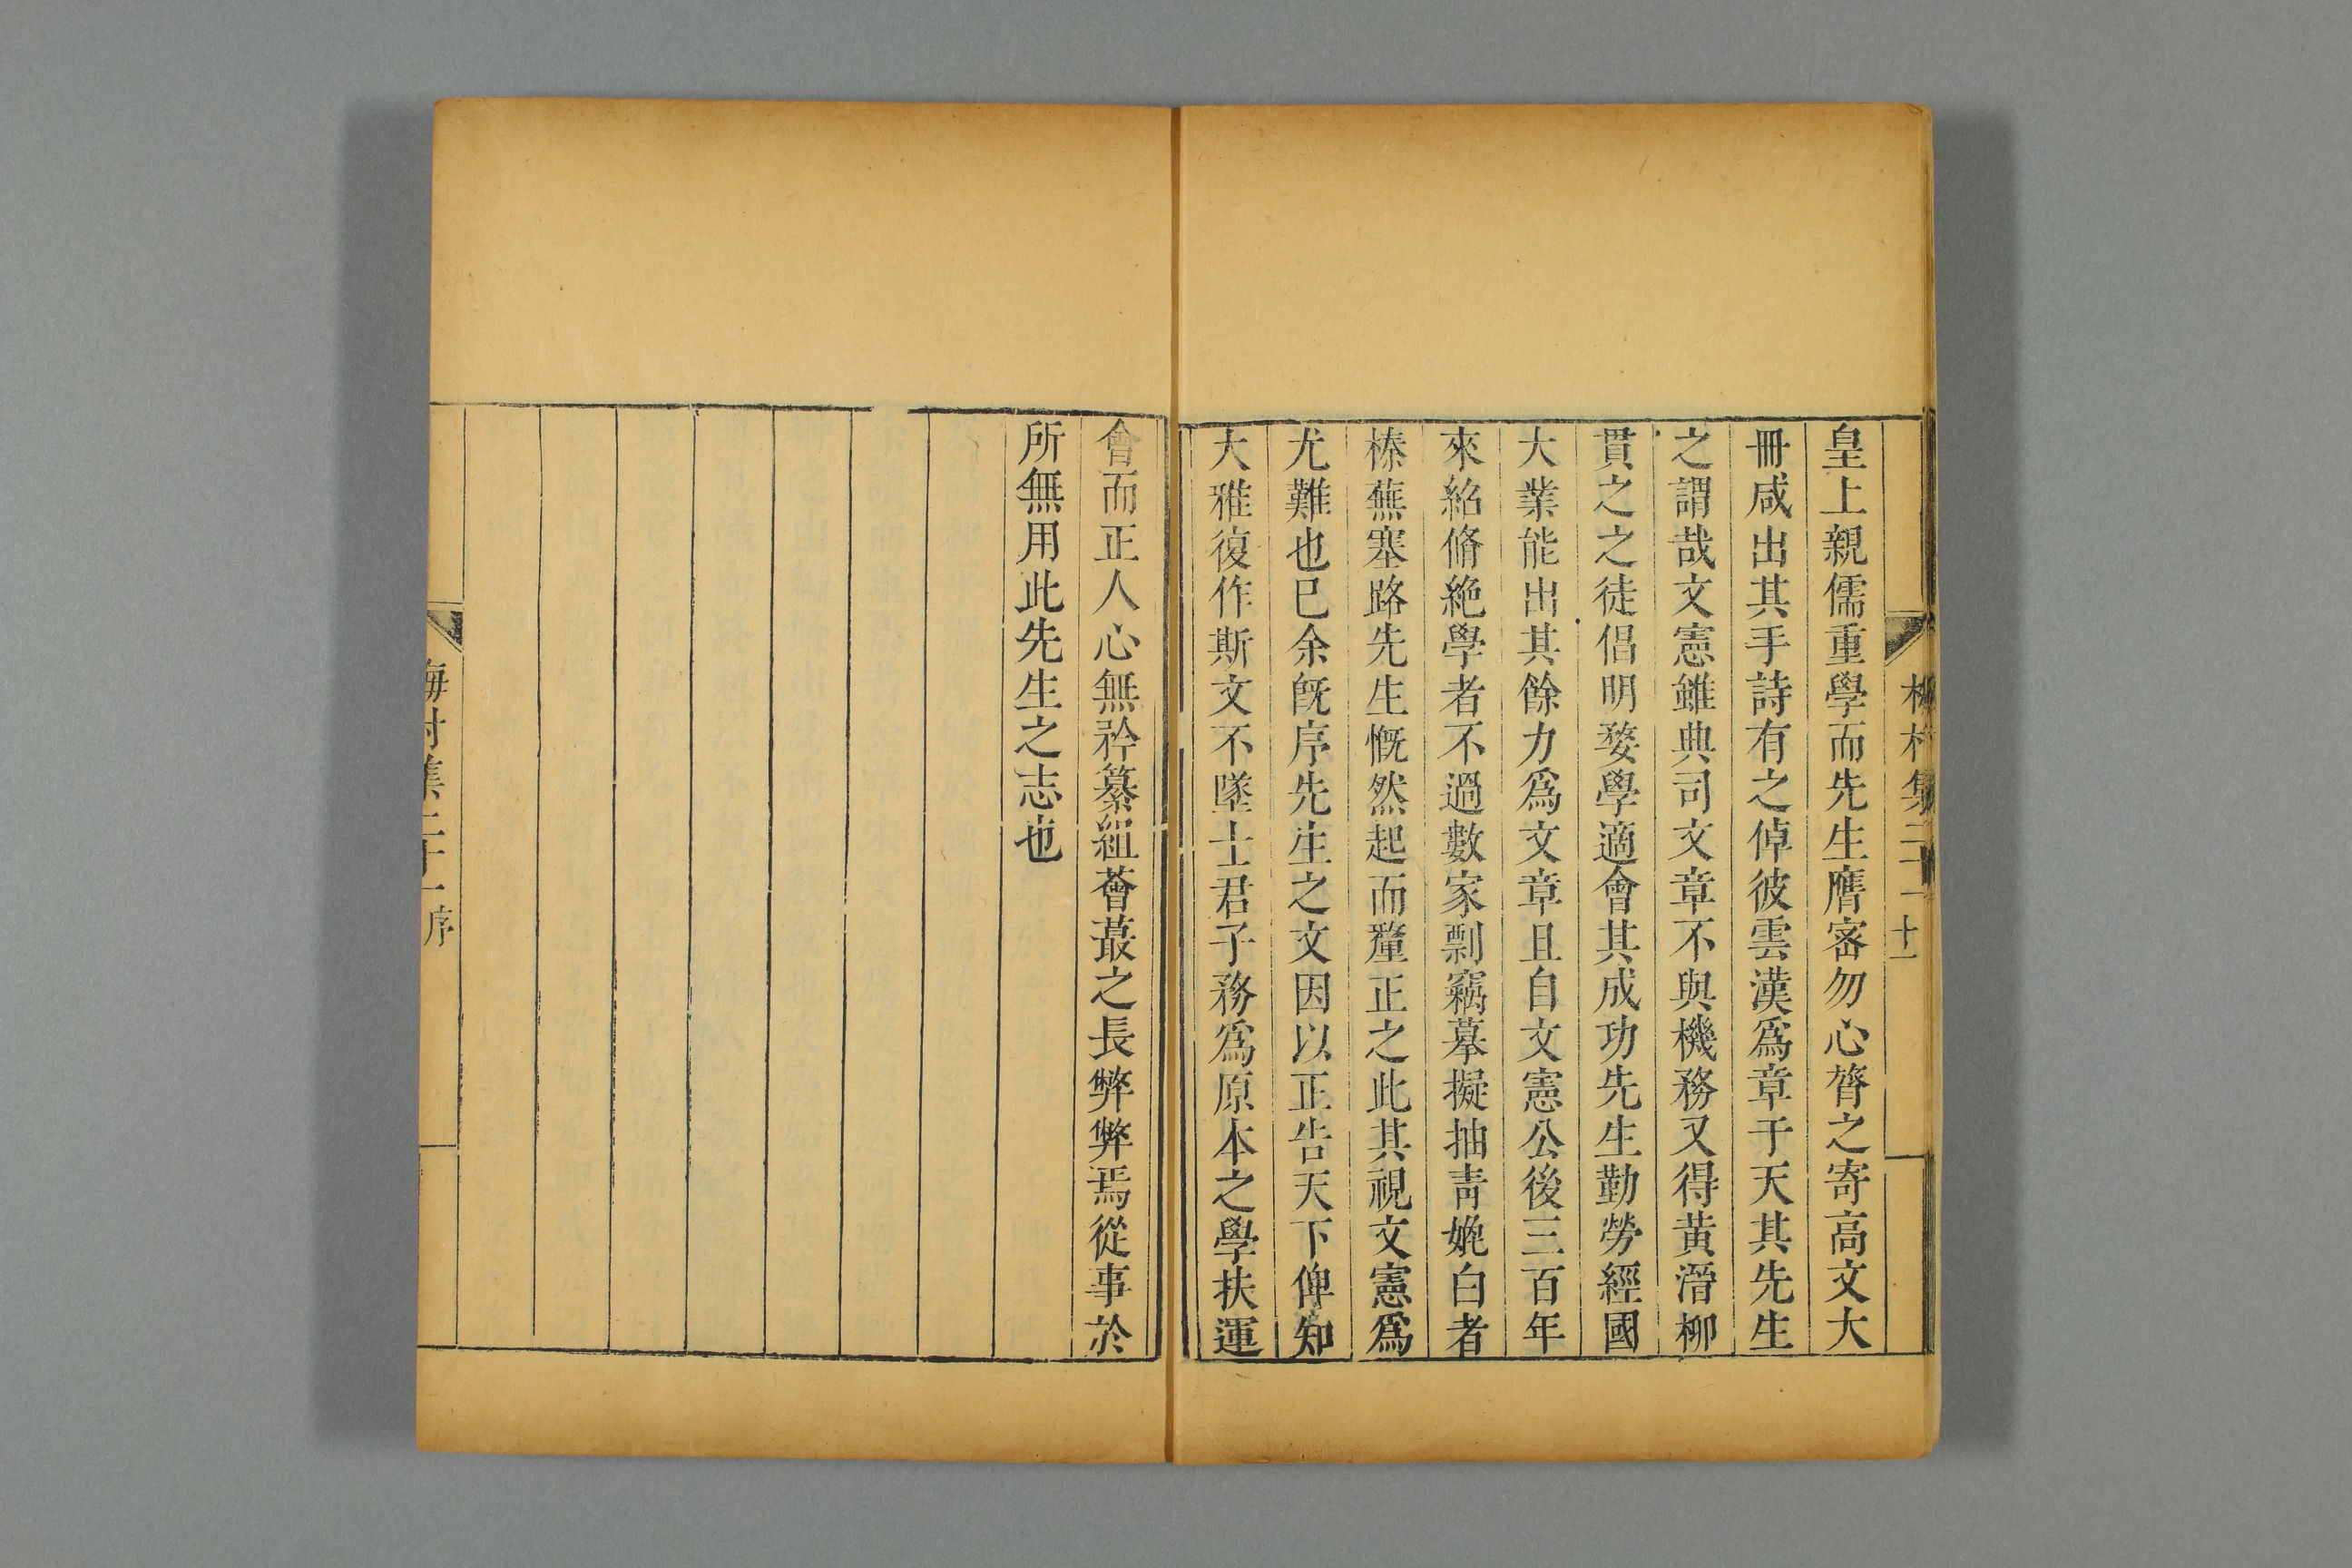 皇上親儒重學而先生膺密勿心膂之寄高文大
冊咸出其手詩有之倬彼雲漢爲章于天其先生
之謂哉文憲雖典司文章不與機務又得黃溍柳
貫之之徒倡明婺學適會其成功先生勤勞經國
大業能出其餘力爲文章且自文憲公後三百年
來紹脩絶學者不過數家剽竊摹擬抽靑媲白者
榛蕪塞路先生慨然起而釐正之此其視文憲爲
尤難也巳余旣序先生之文因以正告天下俾知
大雅復作斯文不墜士君子務爲原本之學扶運
會而正人心無矜纂組薈蕞之長弊弊焉從事於
所無用此先生之志也
梅村集二十一序